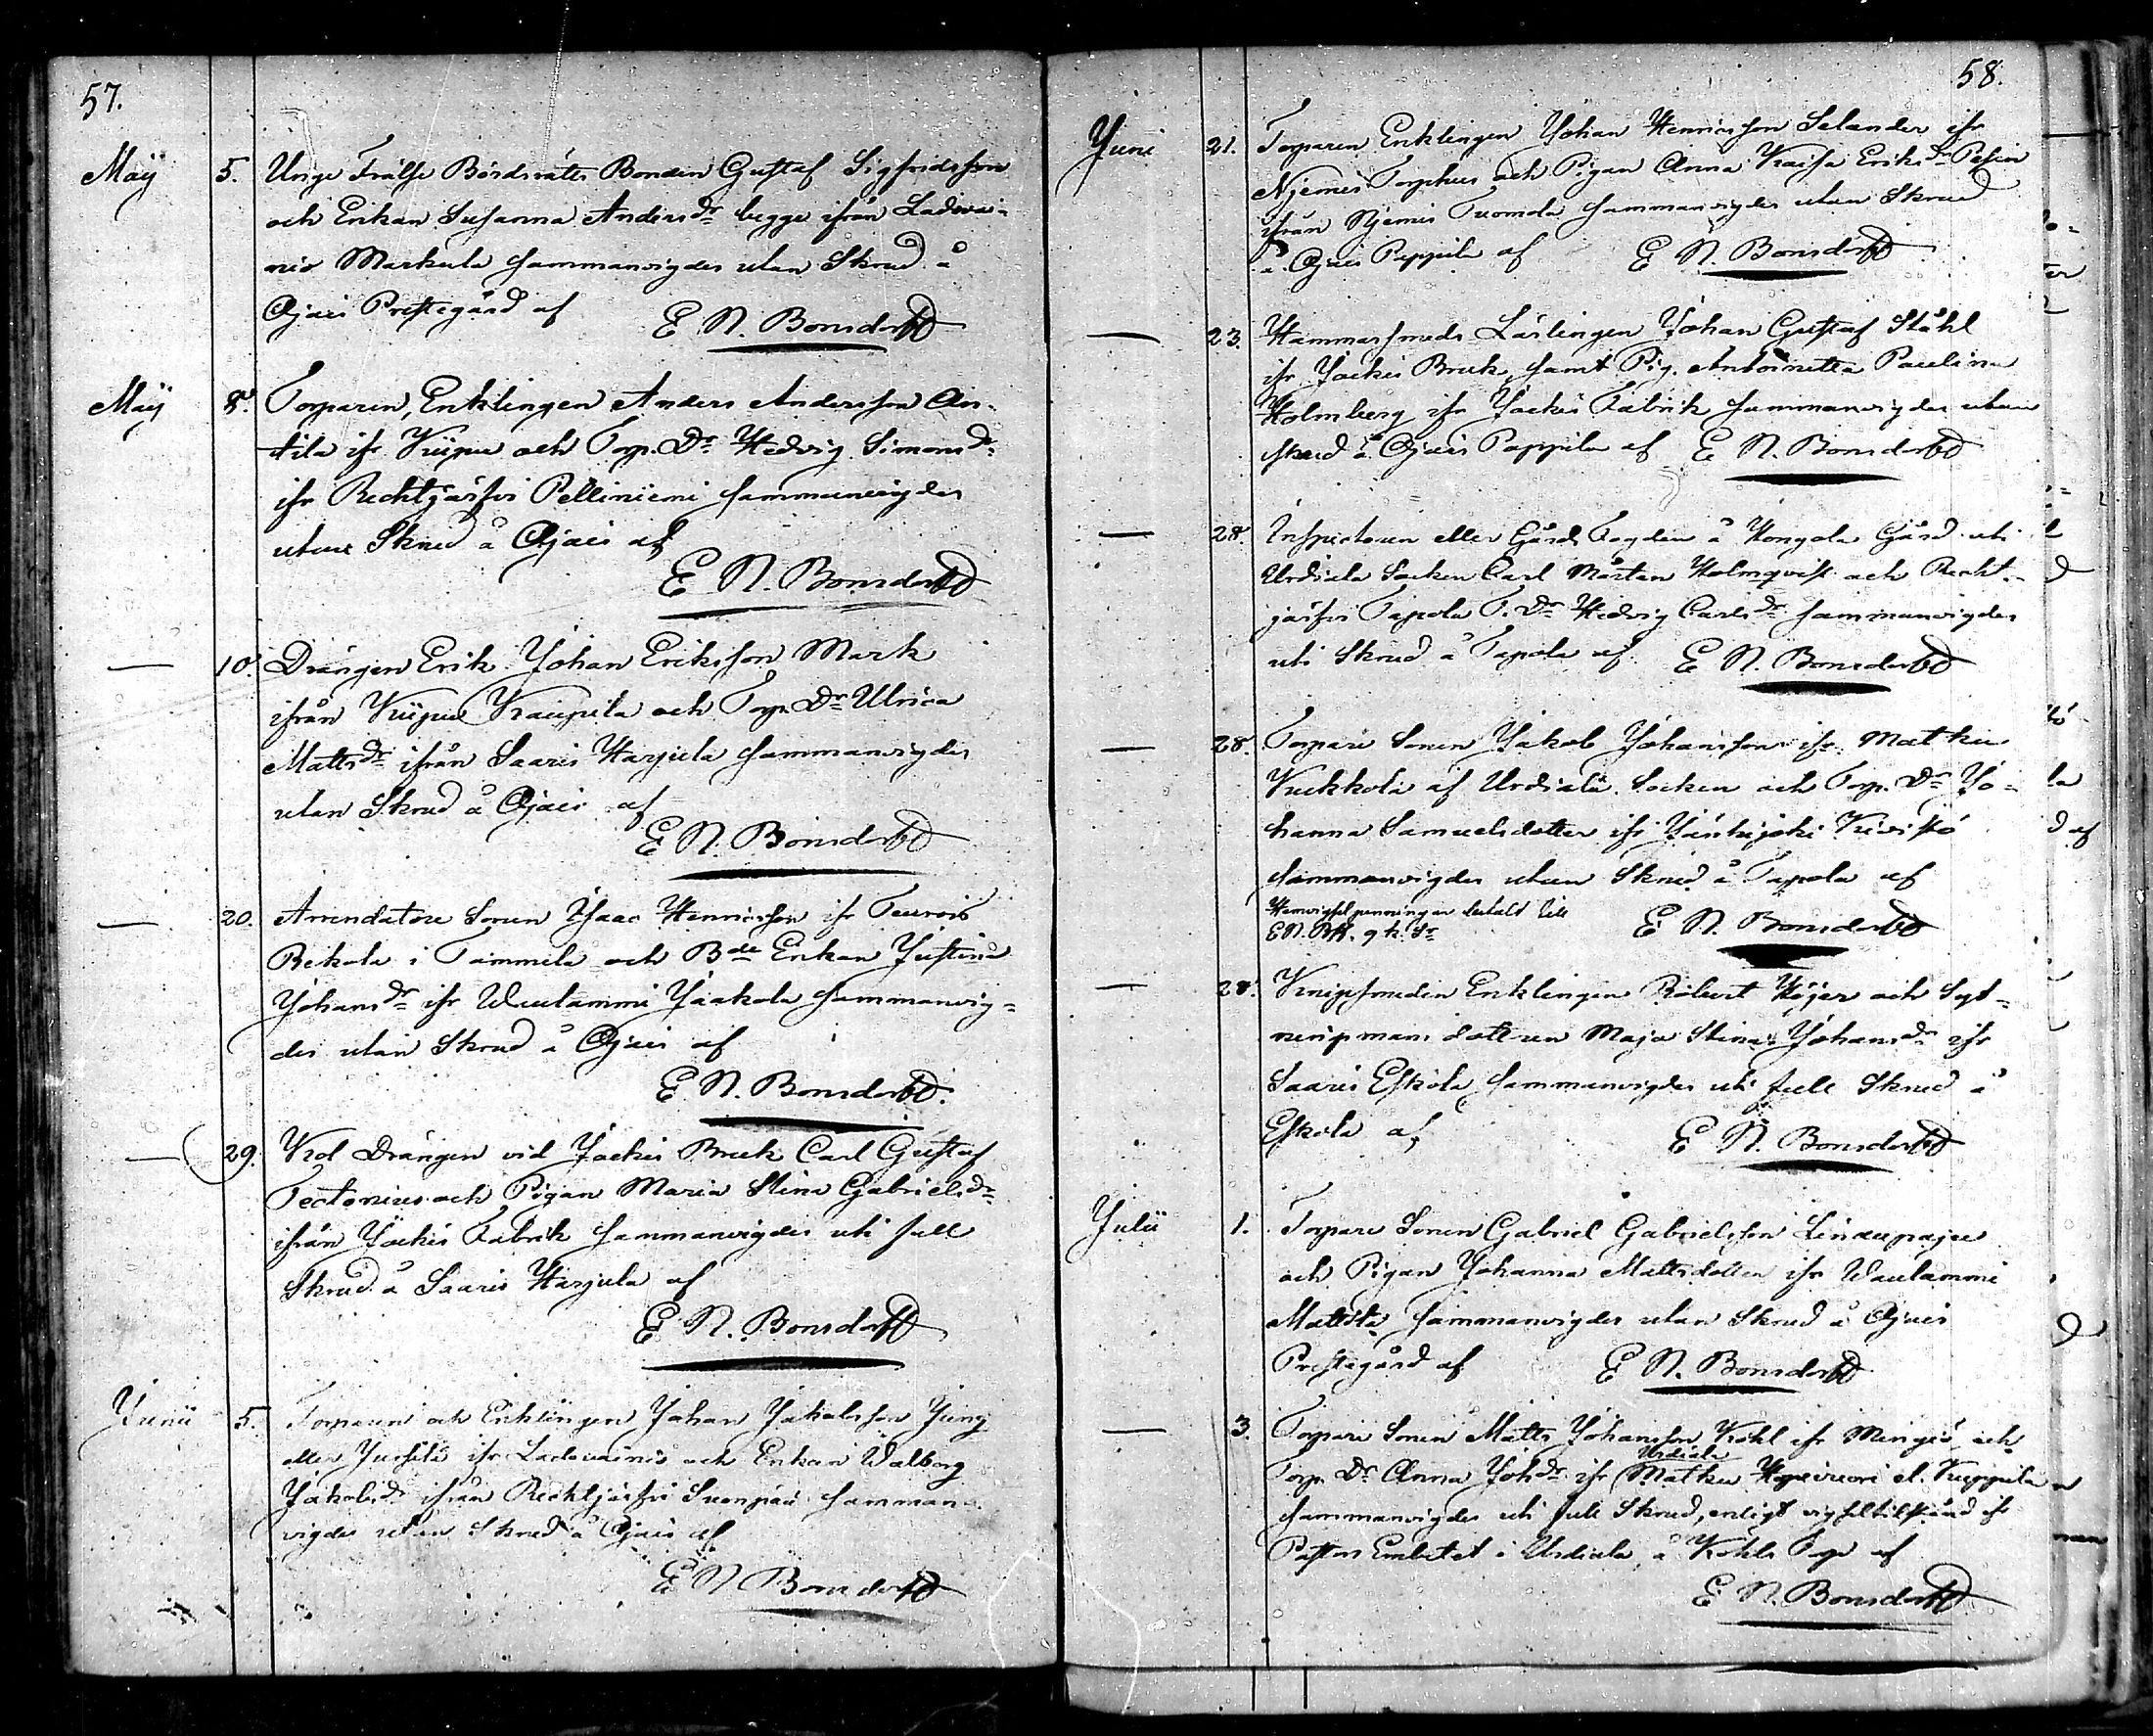 57.
Maij 5. Unge Frälse Bördsrätts Bonden Gustaf Sigfridsson
och Enkan Susanna Andersdr begge ifrån Ladwai-
nio Markula sammanvigdes utan Skrud å
Ojais Prestegård af E. N. Bonsdorff
Maij 8. Torparen, Enklingen Anders Andersson An-
tila ifr Kiipu och Torp. Dr Hedvig Simonsdr
ifr Rechtijärfvi Pelliniemi sammanvigdes
utan Skrud å Ojais af
E. N. Bonsdorff
— 10. Drängen Erik Johan Eriksson Mark
ifrån Kiipu Kraupila och Torp. Dr Ulrica
Mattsdr ifrån Saaris Harjula sammanvigdes
utan Skrud å Ojais af
E. N. Bonsdorff
— 20. Arrendatore Sonen Isaac Henricsson ifr Teuro
Rekola i Tammela och Bde Enkan Justina
Johansdr ifr Waulammi Jaakola sammanvig=
des utan Skrud å Ojais af
E. N. Bonsdorff.
— 29. Kol Drängen vid Jockis Bruk Carl Gustaf
Tectonius och Pigan Maria Stina Gabrielsdr
ifrån Jockis Fabrik sammanvigdes uti full
Skrud å Saaris Harjula af
E. N. Bonsdorff
Junii 5. Torparen och Enklingen Johan Jakobsson Jung
eller ifr och Enkan Walborg
Jakobsdr ifrån Rechtijärfvi Suonpää samman-
vigdes utan Skrud å Ojais af
E. N. Bonsdorff
58.
Juni 21. Torparen Enklingen Johan Henricsson Selander ifr
Njemis Torphus och Pigan Anna Kaisa Eriksdr
ifrån Njemis Tuomola sammanvigdes utan Skrud
å Ojais Pappila af E. N. Bonsdorff
— 23. Hammarsmeds Lärlingen Johan Gustaf Ståhl
ifr Jockis Bruk, samt Pig. Antoinetta Paulina
Holmberg ifr Jockis Fabrik sammanvigdes utan
skrud å Ojais Pappila af E. N. Bonsdorff
— 28. Inspectoren eller Gårds Fogden å Hongola Gård uti
Urdiala Socken Carl Mårten Holmqvist och Recht-
järfvi Tapola T. Dr Hedvig Carlsdr sammanvigdes
uti Skrud å Tapola af E. N. Bonsdorff
— 28. Torpare Sonen Jakob Johansson ifr. Matku
Kukkola af Urdiala Socken och Torp. Dr Jo-
hanna Samuelsdotter ifr Jänhijoki Kivistö
sammanvigdes utan Skrud å Tapola af
penningar betalt till
E. N. Bff. 9 k. Sr E. N. Bonsdorff
— 28. Knipsmeden Enklingen Robert Höijer och Sex-
mans dottren Maja Stina Johansdr ifr
Saaris Eskola sammanvigdes uti full Skrud å
Eskola af E. N. Bonsdorff
Julii 1. Torpare Sonen Gabriel Gabrielsson Linaupajus
och Pigan Johanna Mattsdotter ifr Waulammi
Mattila sammanvigdes utan Skrud å Ojais
Prestegård af E. N. Bonsdorff
— 3. Torpare Sonen Matts Johansson Kohl ifr Mingiö och
Urdiala
Torp. Dr Anna Johdr ifr Matku el. Kuppila
sammanvigdes uti full Skrud, enligt ifr
Pastors Embetet i Urdiala, å Kohls Torp af
E. N. Bonsdorff